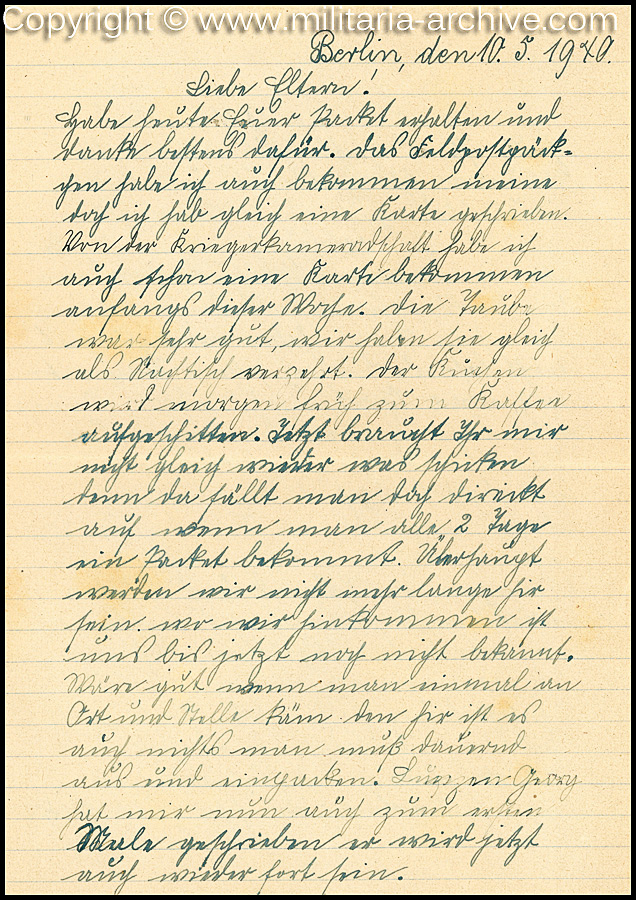 Copyright © www.militaria-archive.com
Berlin, den 10. 5. 1940.
Liebe Eltern!
Habe heute Euer Packet erhalten und
danke bestens dafür. Das Feldpostpäck-
chen habe ich auch bekommen meine
doch ich hab gleich eine Karte geschrieben.
Von der Kriegerkameradschaft habe ich
auch schon eine Karte bekommen
anfangs dieser Woche. Die Taube
war sehr gut, wir haben sie gleich
als Nachtisch verzehrt. Der Kuchen
wird morgen früh zum Kaffee
aufgeschitten. Jetzt braucht Ihr mir
nicht gleich wieder was schicken
denn da fällt man doch direckt
auf wenn man alle 2 Tage
ein Packet bekommt. Überhaupt
werden wir nicht mehr lange hir
sein. wo wir hinkommen ist
uns bis jetzt noch nicht bekannt.
Wäre gut wenn man einmal an
Ort und Stelle käm den hir ist es
auch nichts man muß dauernd
aus und einpacken. Georg
hat mir nun auch zum ersten
Male geschrieben er wird jetzt
auch wieder fort sein.